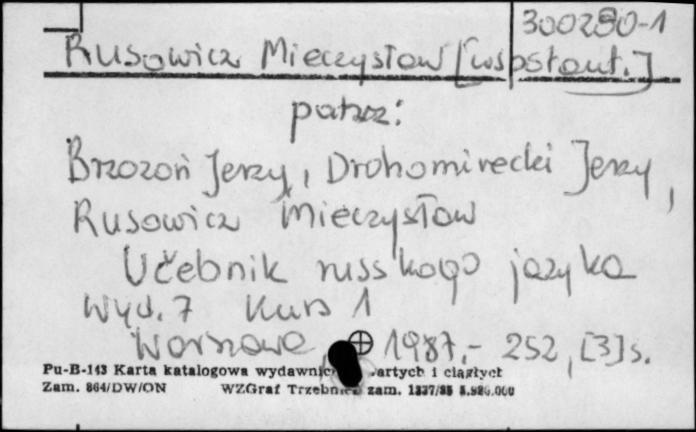 300280-1
Rusowicz Mieczysław [współaut.]
patrz:
Brzozoń Jerzy, Drohomirecki Jerzy,
Rusowicz Mieczysław
Učebnik russkogo jazyka
Wyd. 7 Kurs 1
Warszawa 1987.- 252, [3] s.
Pu-B-143 Karta katalogowa wydawnic artych i ciągłych
Zam. 864/DW/ON WZGraf Trzebnica zam. 1337/85